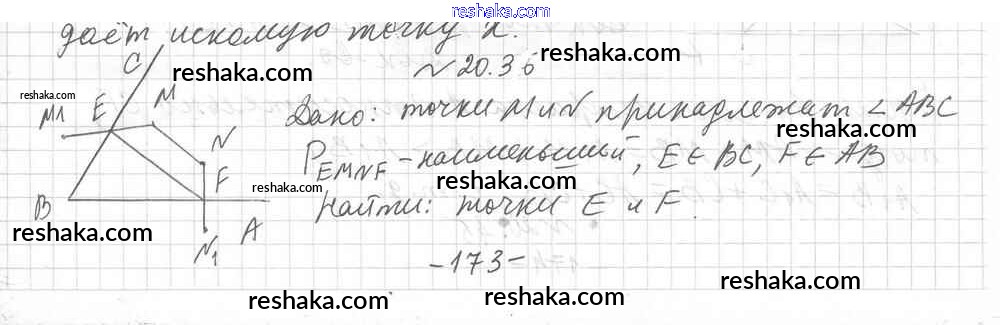 reshaka.com
даёт искомую точку X.
№ 20.36
reshaka.com
reshaka.com
C
M1 E M
N
F
B
A
N1
Дано: точки M и N принадлежат ∠ ABC
reshaka.com
P EMNF - наименьший, E ∈ BC, F ∈ AB
reshaka.com
reshaka.com
Найти: точки E и F.
reshaka.com
-173-
reshaka.com
reshaka.com
reshaka.com